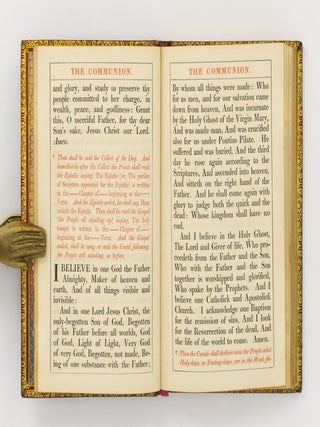 THE COMMUNION.
and glory, and study to preserve thy
people committed to her charge, in
wealth, peace, and godliness: Grant
this, O merciful Father, for thy dear
Son's sake, Jesus Christ our Lord.
Amen.
¶ Then shall be said the Collect of the Day. And
immediately after the Collect the Priest shall read
the Epistle, saying, The Epistle [or, The portion
of Scripture appointed for the Epistle] is written
in the — Chapter of — beginning at the —
Verse. And the Epistle ended, he shall say, Here
endeth the Epistle. Then shall he read the Gospel
(the People all standing up) saying, The holy
Gospel is written in the — Chapter of —
beginning at the — Verse. And the Gospel
ended, shall be sung or said the Creed following,
the People still standing, as before.
I BELIEVE in one God the Father
Almighty, Maker of heaven and
earth, And of all things visible and
invisible:
And in one Lord Jesus Christ, the
only-begotten Son of God, Begotten
of his Father before all worlds, God
of God, Light of Light, Very God
of very God, Begotten, not made, Be-
ing of one substance with the Father,
THE COMMUNION.
By whom all things were made: Who
for us men, and for our salvation came
down from heaven, And was incarnate
by the Holy Ghost of the Virgin Mary,
And was made man, And was crucified
also for us under Pontius Pilate. He
suffered and was buried, And the third
day he rose again according to the
Scriptures, And ascended into heaven,
And sitteth on the right hand of the
Father. And he shall come again with
glory to judge both the quick and the
dead: Whose kingdom shall have no
end.
And I believe in the Holy Ghost,
The Lord and Giver of life, Who pro-
ceedeth from the Father and the Son,
Who with the Father and the Son
together is worshipped and glorified,
Who spake by the Prophets. And I
believe one Catholick and Apostolick
Church. I acknowledge one Baptism
for the remission of sins, And I look
for the Resurrection of the dead, And
the life of the world to come. Amen.
¶ Then the Curate shall declare unto the People what
Holy-days, or Fasting-days, are in the Week fol-